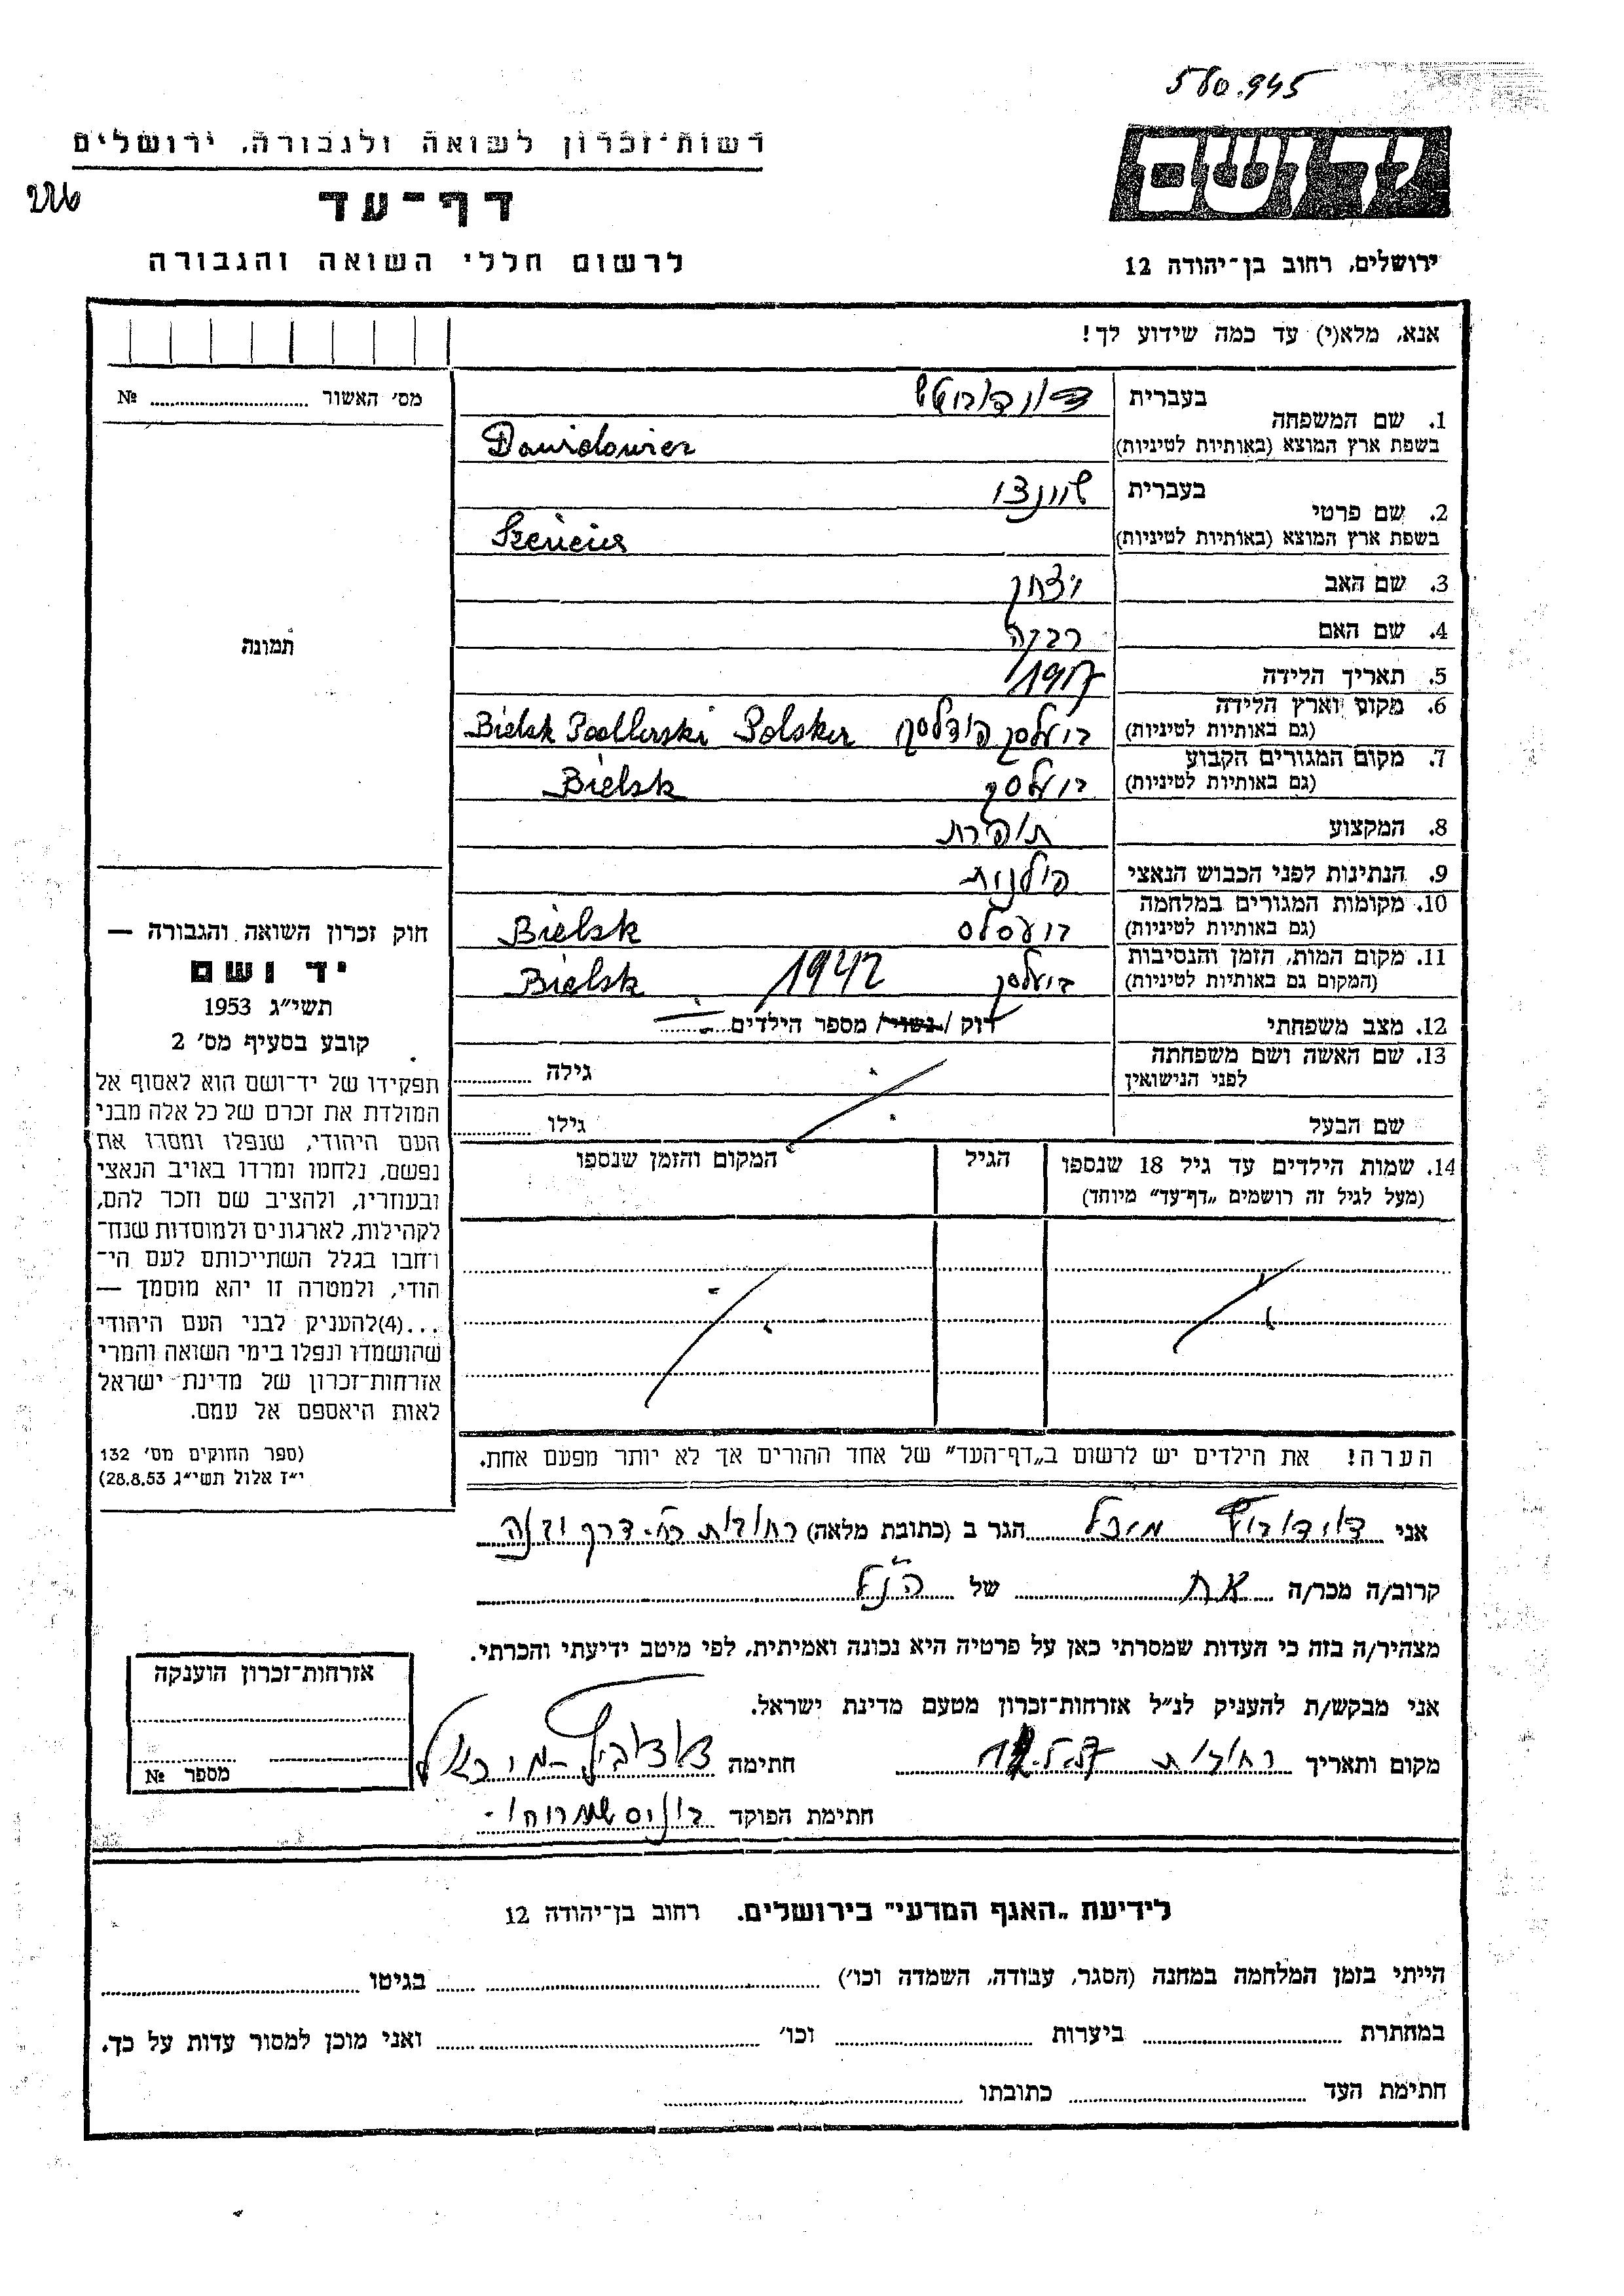 580.945
רשות־זכרון לשואה ולגבורה, ירושלים
דף־עד
לרשום חללי השואה והגבורה
יד ושם
ירושלים, רחוב בן־יהודה 12
אנא, מלא(י) עד כמה שידוע לך!
מס׳ האשור № ........
בעברית
1. שם המשפחה
בשפת ארץ המוצא (באותיות לטיניות) Dawidowicz
בעברית
2. שם פרטי
בשפת ארץ המוצא (באותיות לטיניות)
3. שם האב יצחק
4. שם האם רבקה
5. תאריך הלידה 1917
6. מקום וארץ הלידה
(גם באותיות לטיניות) Bielsk Podlerski Polska
7. מקום המגורים הקבוע
(גם באותיות לטיניות) Bielsk
8. המקצוע תופרת
9. הנתינות לפני הכבוש הנאצי פולנית
10. מקומות המגורים במלחמה
(גם באותיות לטיניות) Bielsk
11. מקום המות, הזמן והנסיבות
(המקום גם באותיות לטיניות) 1942 Bielsk
12. מצב משפחתי רוק / נשוי / מספר הילדים........
13. שם האשה ושם משפחתה
לפני הנישואין
גילה ........
שם הבעל
גילו ........
14. שמות הילדים עד גיל 18 שנספו
(מעל לגיל זה רושמים „דף־עד״ מיוחד)
הגיל
המקום והזמן שנספו
תמונה
חוק זכרון השואה והגבורה —
יד ושם
תשי״ג 1953
קובע בסעיף מס׳ 2
תפקידו של יד־ושם הוא לאסוף אל
המולדת את זכרם של כל אלה מבני
העם היהודי, שנפלו ומסרו את
נפשם, נלחמו ומרדו באויב הנאצי
ובעוזריו, ולהציב שם וזכר להם,
לקהילות, לארגונים ולמוסדות שנח־
רבו בגלל השתייכותם לעם הי־
הודי, ולמטרה זו יהא מוסמך —
...(4)להעניק לבני העם היהודי
שהושמדו ונפלו בימי השואה והמרי
אזרחות־זכרון של מדינת ישראל
לאות היאספם אל עמם.
(ספר החוקים מס׳ 132
י״ז אלול תשי״ג 28.8.53)
הערה! את הילדים יש לרשום ב„דף־העד״ של אחד ההורים אך לא יותר מפעם אחת.
אני הגר ב (כתובת מלאה) רחובות
קרוב/ה מכר/ה אח של הנ״ל
מצהיר/ה בזה כי העדות שמסרתי כאן על פרטיה היא נכונה ואמיתית, לפי מיטב ידיעתי והכרתי.
אני מבקש/ת להעניק לנ״ל אזרחות־זכרון מטעם מדינת ישראל.
מקום ותאריך רחובות חתימה
חתימת הפוקד
אזרחות־זכרון הוענקה
מספר №
לידיעת „האגף המדעי״ בירושלים, רחוב בן־יהודה 12
הייתי בזמן המלחמה במחנה (הסגר, עבודה, השמדה וכו׳) ........ בגיטו ........
במחתרת ........ ביערות ........ וכו׳ ........ ואני מוכן למסור עדות על כך.
חתימת העד ........ כתובתו ........